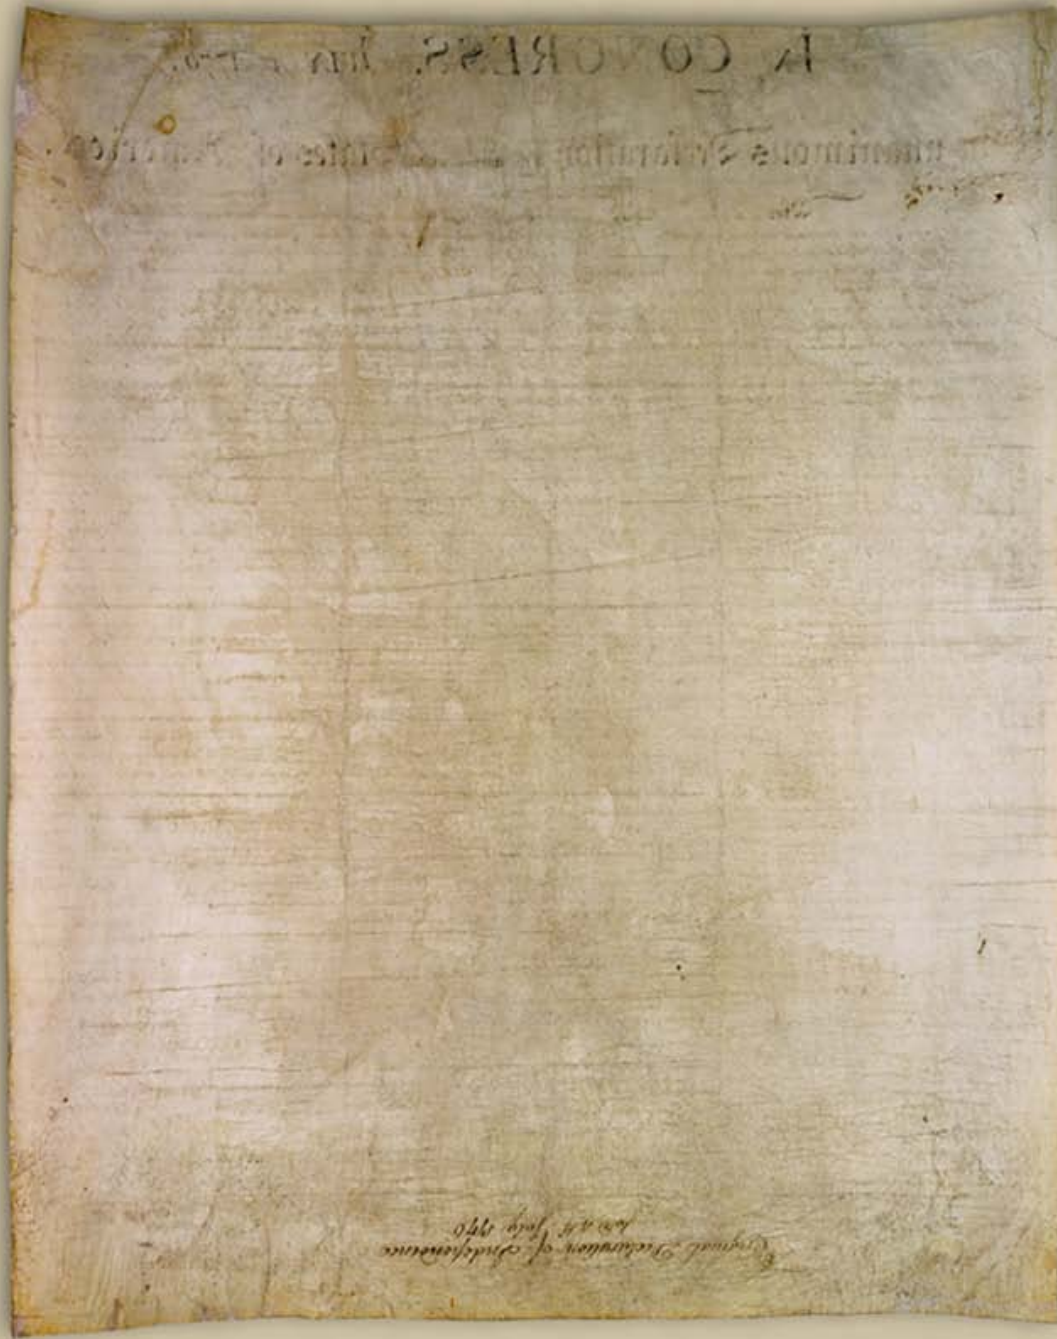 IN CONGRESS, July 4, 1776.
unanimous Declaration of States of America.
Original Declaration of Independence
dated 4th July 1776